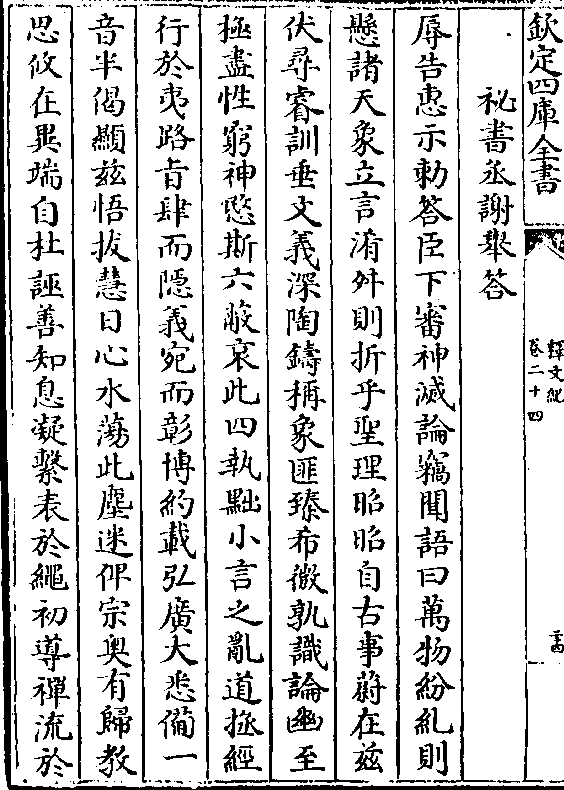 欽定四庫全書
釋文紀
卷二十四
秘書丞謝舉答
辱告惠示勅答臣下審神滅論竊聞語曰萬物紛糺則
懸諸天象立言淆舛則折乎聖理昭昭自古事蔚在兹
伏尋睿訓垂文義深陶鑄稱象匪臻希微孰識論幽至
極盡性窮神愍斯六蔽哀此四執黜小言之亂道拯經
行於夷路旨肆而隱義宛而彰博約載弘廣大悉備一
音半偈顯兹悟拔慧日心水蕩此塵迷俾宗奥有歸教
思攸在異端自杜誣善知息凝繫表於繩初導禪流於